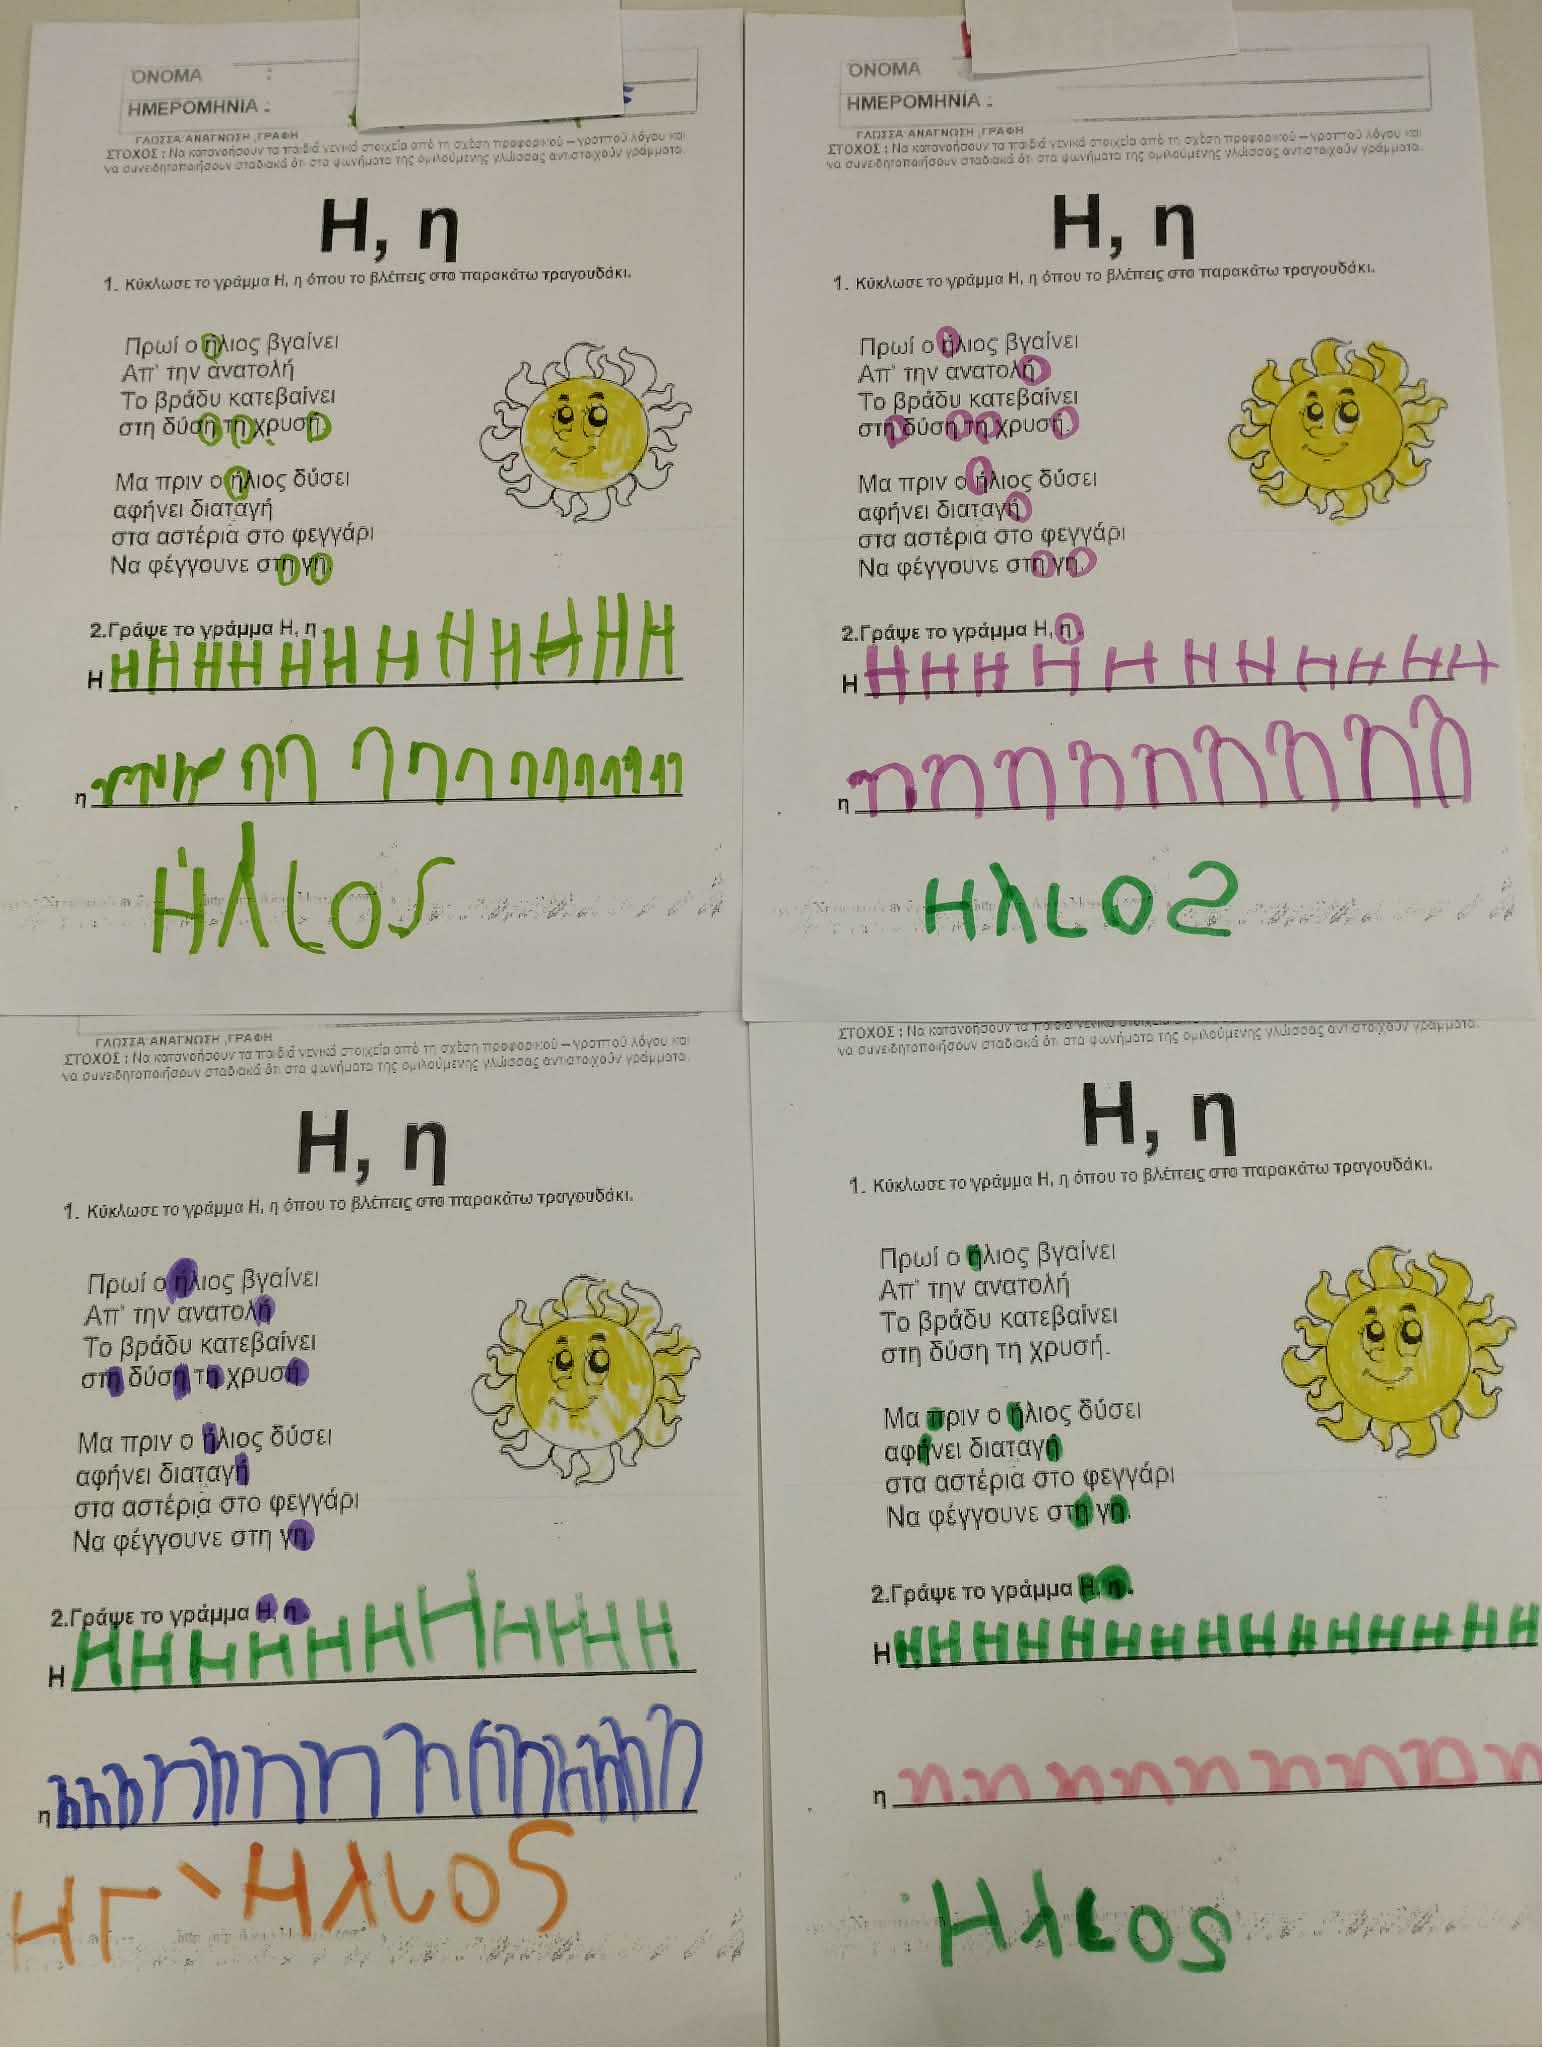 ΌΝΟΜΑ :
ΗΜΕΡΟΜΗΝΙΑ :
ΓΛΩΣΣΑ:ΑΝΑΓΝΩΣΗ ,ΓΡΑΦΗ
ΣΤΟΧΟΣ : Να κατανοήσουν τα παιδιά γενικά στοιχεία από τη σχέση προφορικού – γραπτού λόγου και
να συνειδητοποιήσουν σταδιακά ότι στα φωνήματα της ομιλούμενης γλώσσας αντιστοιχούν γράμματα.
Η, η
1. Κύκλωσε το γράμμα Η, η όπου το βλέπεις στο παρακάτω τραγουδάκι.
Πρωί ο ήλιος βγαίνει
Απ' την ανατολή
Το βράδυ κατεβαίνει
στη δύση τη χρυσή.
Μα πριν ο ήλιος δύσει
αφήνει διαταγή
στα αστέρια στο φεγγάρι
Να φέγγουνε στη γη.
2.Γράψε το γράμμα Η, η .
Η Η Η Η Η Η Η Η Η Η Η Η Η
η
Ηλιος
ΌΝΟΜΑ
ΗΜΕΡΟΜΗΝΙΑ :
ΓΛΩΣΣΑ:ΑΝΑΓΝΩΣΗ ,ΓΡΑΦΗ
ΣΤΟΧΟΣ : Να κατανοήσουν τα παιδιά γενικά στοιχεία από τη σχέση προφορικού – γραπτού λόγου και
να συνειδητοποιήσουν σταδιακά ότι στα φωνήματα της ομιλούμενης γλώσσας αντιστοιχούν γράμματα.
Η, η
1. Κύκλωσε το γράμμα Η, η όπου το βλέπεις στο παρακάτω τραγουδάκι.
Πρωί ο ήλιος βγαίνει
Απ' την ανατολή
Το βράδυ κατεβαίνει
στη δύση τη χρυσή.
Μα πριν ο ήλιος δύσει
αφήνει διαταγή
στα αστέρια στο φεγγάρι
Να φέγγουνε στη γη.
2.Γράψε το γράμμα Η, η .
Η Η Η Η Η Η Η Η Η Η Η Η
η η η η η η η η η η
Ηλιος
ΓΛΩΣΣΑ:ΑΝΑΓΝΩΣΗ ,ΓΡΑΦΗ
ΣΤΟΧΟΣ : Να κατανοήσουν τα παιδιά γενικά στοιχεία από τη σχέση προφορικού – γραπτού λόγου και
να συνειδητοποιήσουν σταδιακά ότι στα φωνήματα της ομιλούμενης γλώσσας αντιστοιχούν γράμματα.
Η, η
1. Κύκλωσε το γράμμα Η, η όπου το βλέπεις στο παρακάτω τραγουδάκι.
Πρωί ο ήλιος βγαίνει
Απ' την ανατολή
Το βράδυ κατεβαίνει
στη δύση τη χρυσή
Μα πριν ο ήλιος δύσει
αφήνει διαταγή
στα αστέρια στο φεγγάρι
Να φέγγουνε στη γη.
2.Γράψε το γράμμα Η, η .
Η Η Η Η Η Η Η Η Η Η Η Η
η
Ηλιος
ΣΤΟΧΟΣ : Να κατανοήσουν τα παιδιά γενικά στοιχεία από τη σχέση προφορικού – γραπτού λόγου και
να συνειδητοποιήσουν σταδιακά ότι στα φωνήματα της ομιλούμενης γλώσσας αντιστοιχούν γράμματα.
Η, η
1. Κύκλωσε το γράμμα Η, η όπου το βλέπεις στο παρακάτω τραγουδάκι.
Πρωί ο ήλιος βγαίνει
Απ' την ανατολή
Το βράδυ κατεβαίνει
στη δύση τη χρυσή.
Μα πριν ο ήλιος δύσει
αφήνει διαταγή
στα αστέρια στο φεγγάρι
Να φέγγουνε στη γη.
2.Γράψε το γράμμα Η, η .
Η Η Η Η Η Η Η Η Η Η Η Η Η Η Η Η
η η η η η η η η η η
Ηλιος